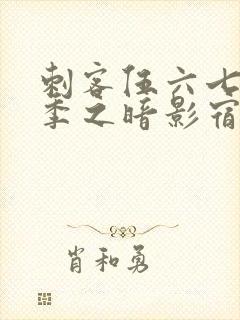 刺客伍六七
季之暗影宿
肖和勇